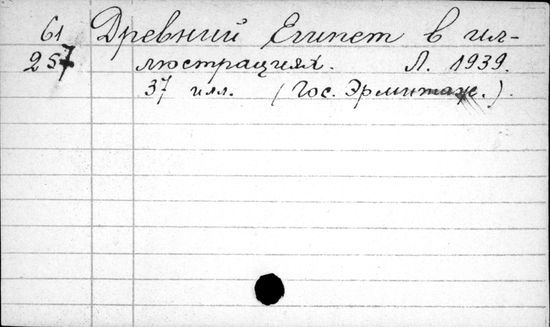 61 Древний Египет в ил-
257 люстрациях. Л. 1939.
37 илл. (Гос. Эрмитаж.).